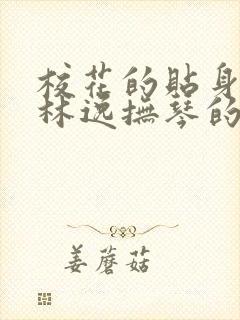 校花的贴身
林逸撫琴的
姜蘑菇